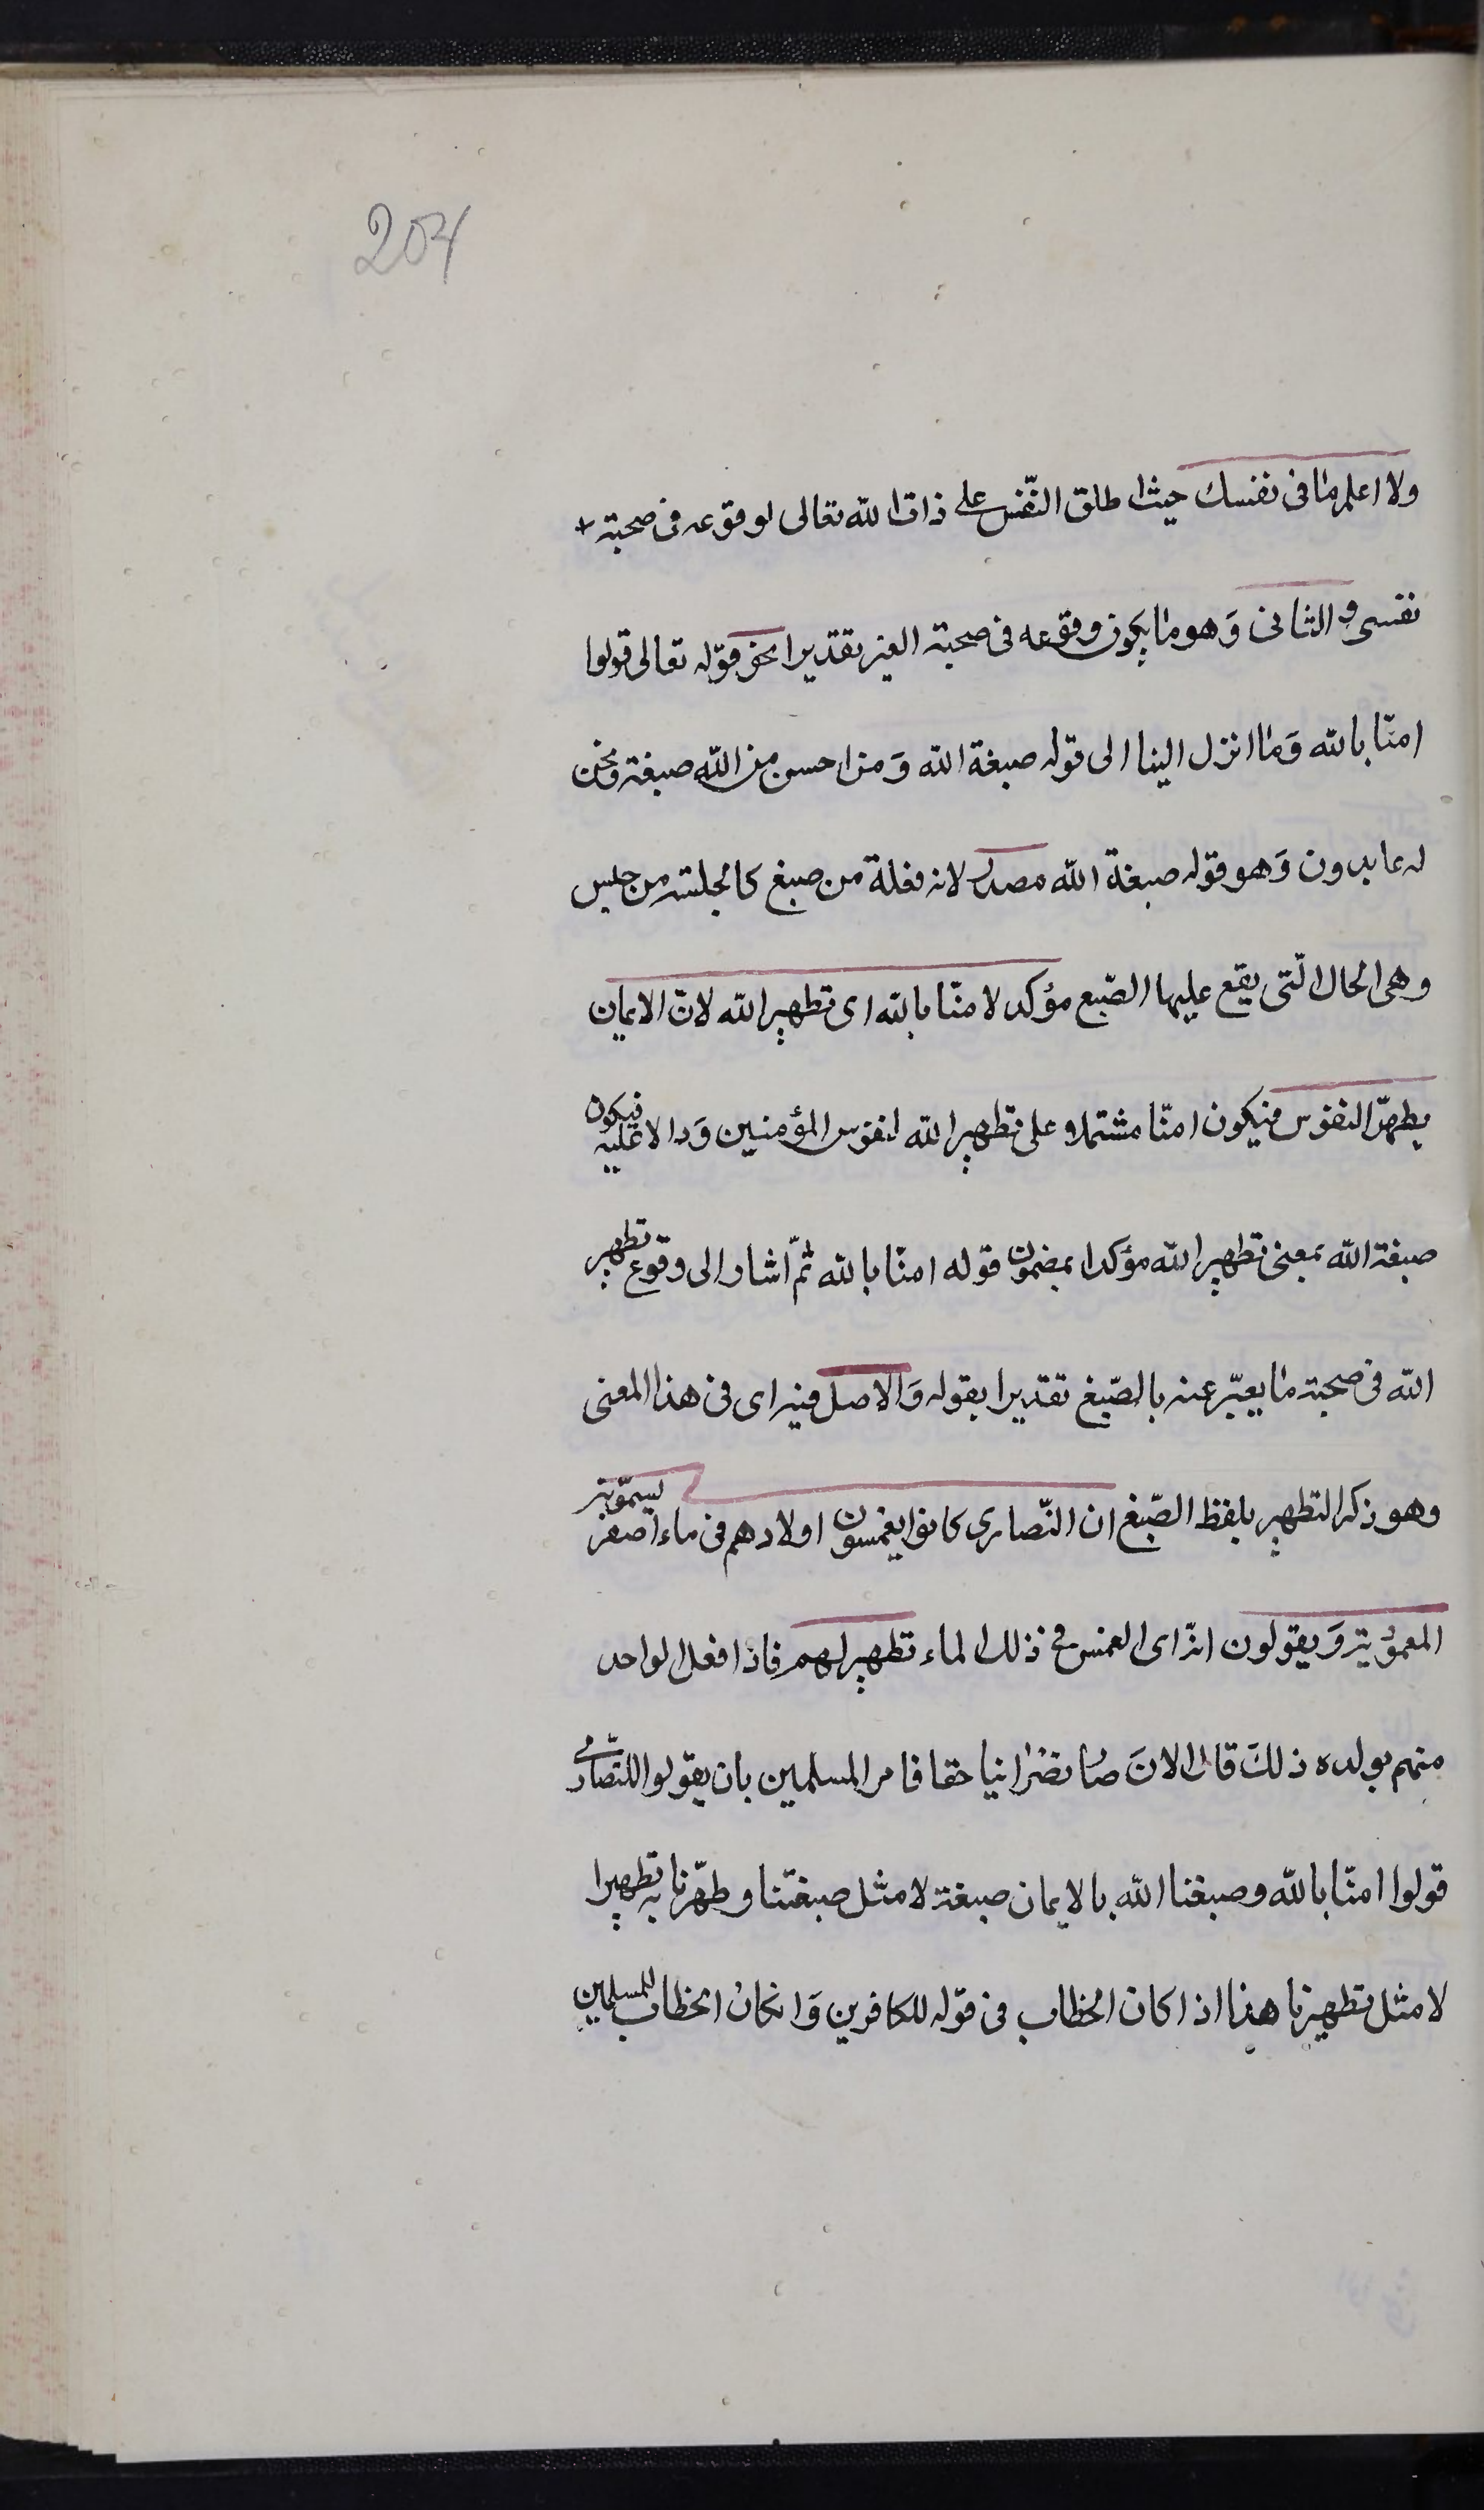 204
ولا اعلم ما فى نفسك حيث اطلق النّفس على ذات الله تعالى لوقوعه فى صحبة
نفسى و الثانى وَهو ما يكون وقوعه فى صحبة الغير تقديرا نحو قوله تعالى قولوا
امنّا بالله وَما انزل الينا الى قوله صبغة الله وَمن احسن من الله صبغة ونحن
له عابدون وَهو قوله صبغة الله مصدر لانه فعلة من صبغ كالجلسة من جلس
وهى الحال الّتى يقع عليها الصّبع مؤكد لامنّا بالله اى تطهير الله لانّ الايمان
يطهّر النفوس فيكون امنّا مشتملا على تطهير الله لنفوس المؤمنين وَدالا عليه فيكون
صبغة الله بمعنى تطهير الله مؤكدا بمضمون قوله امنّا بالله ثمّ اشار الى وقوع تطهير
الله فى صحبة ما يعبّر عنه بالصّبغ تقديرا بقوله وَالاصل فيه اى فى هذا المعنى
وهو ذكر التطهير بلفظ الصّبغ ان النّصارى كانوا يغمسون اولادهم فى ماء اصفر يسمّونه
المعموديّة وَيقولون انّه اى الغمس فى ذلك الماء تطهير لهم فاذا فعل الواحد
منهم بولده ذلكَ قال الانَ صار نصْرانيا حقا فامر المسلمين بان يقولوا للنصارى
قولوا امنّا بالله وصبغنا الله بالايمان صبغة لا مثل صبغتنا وطهّرنا به تطهيرا
لا مثل تطهيرنا هذا اذا كان الخطاب فى قوله للكافرين وَانكان الخطاب للمسلمين